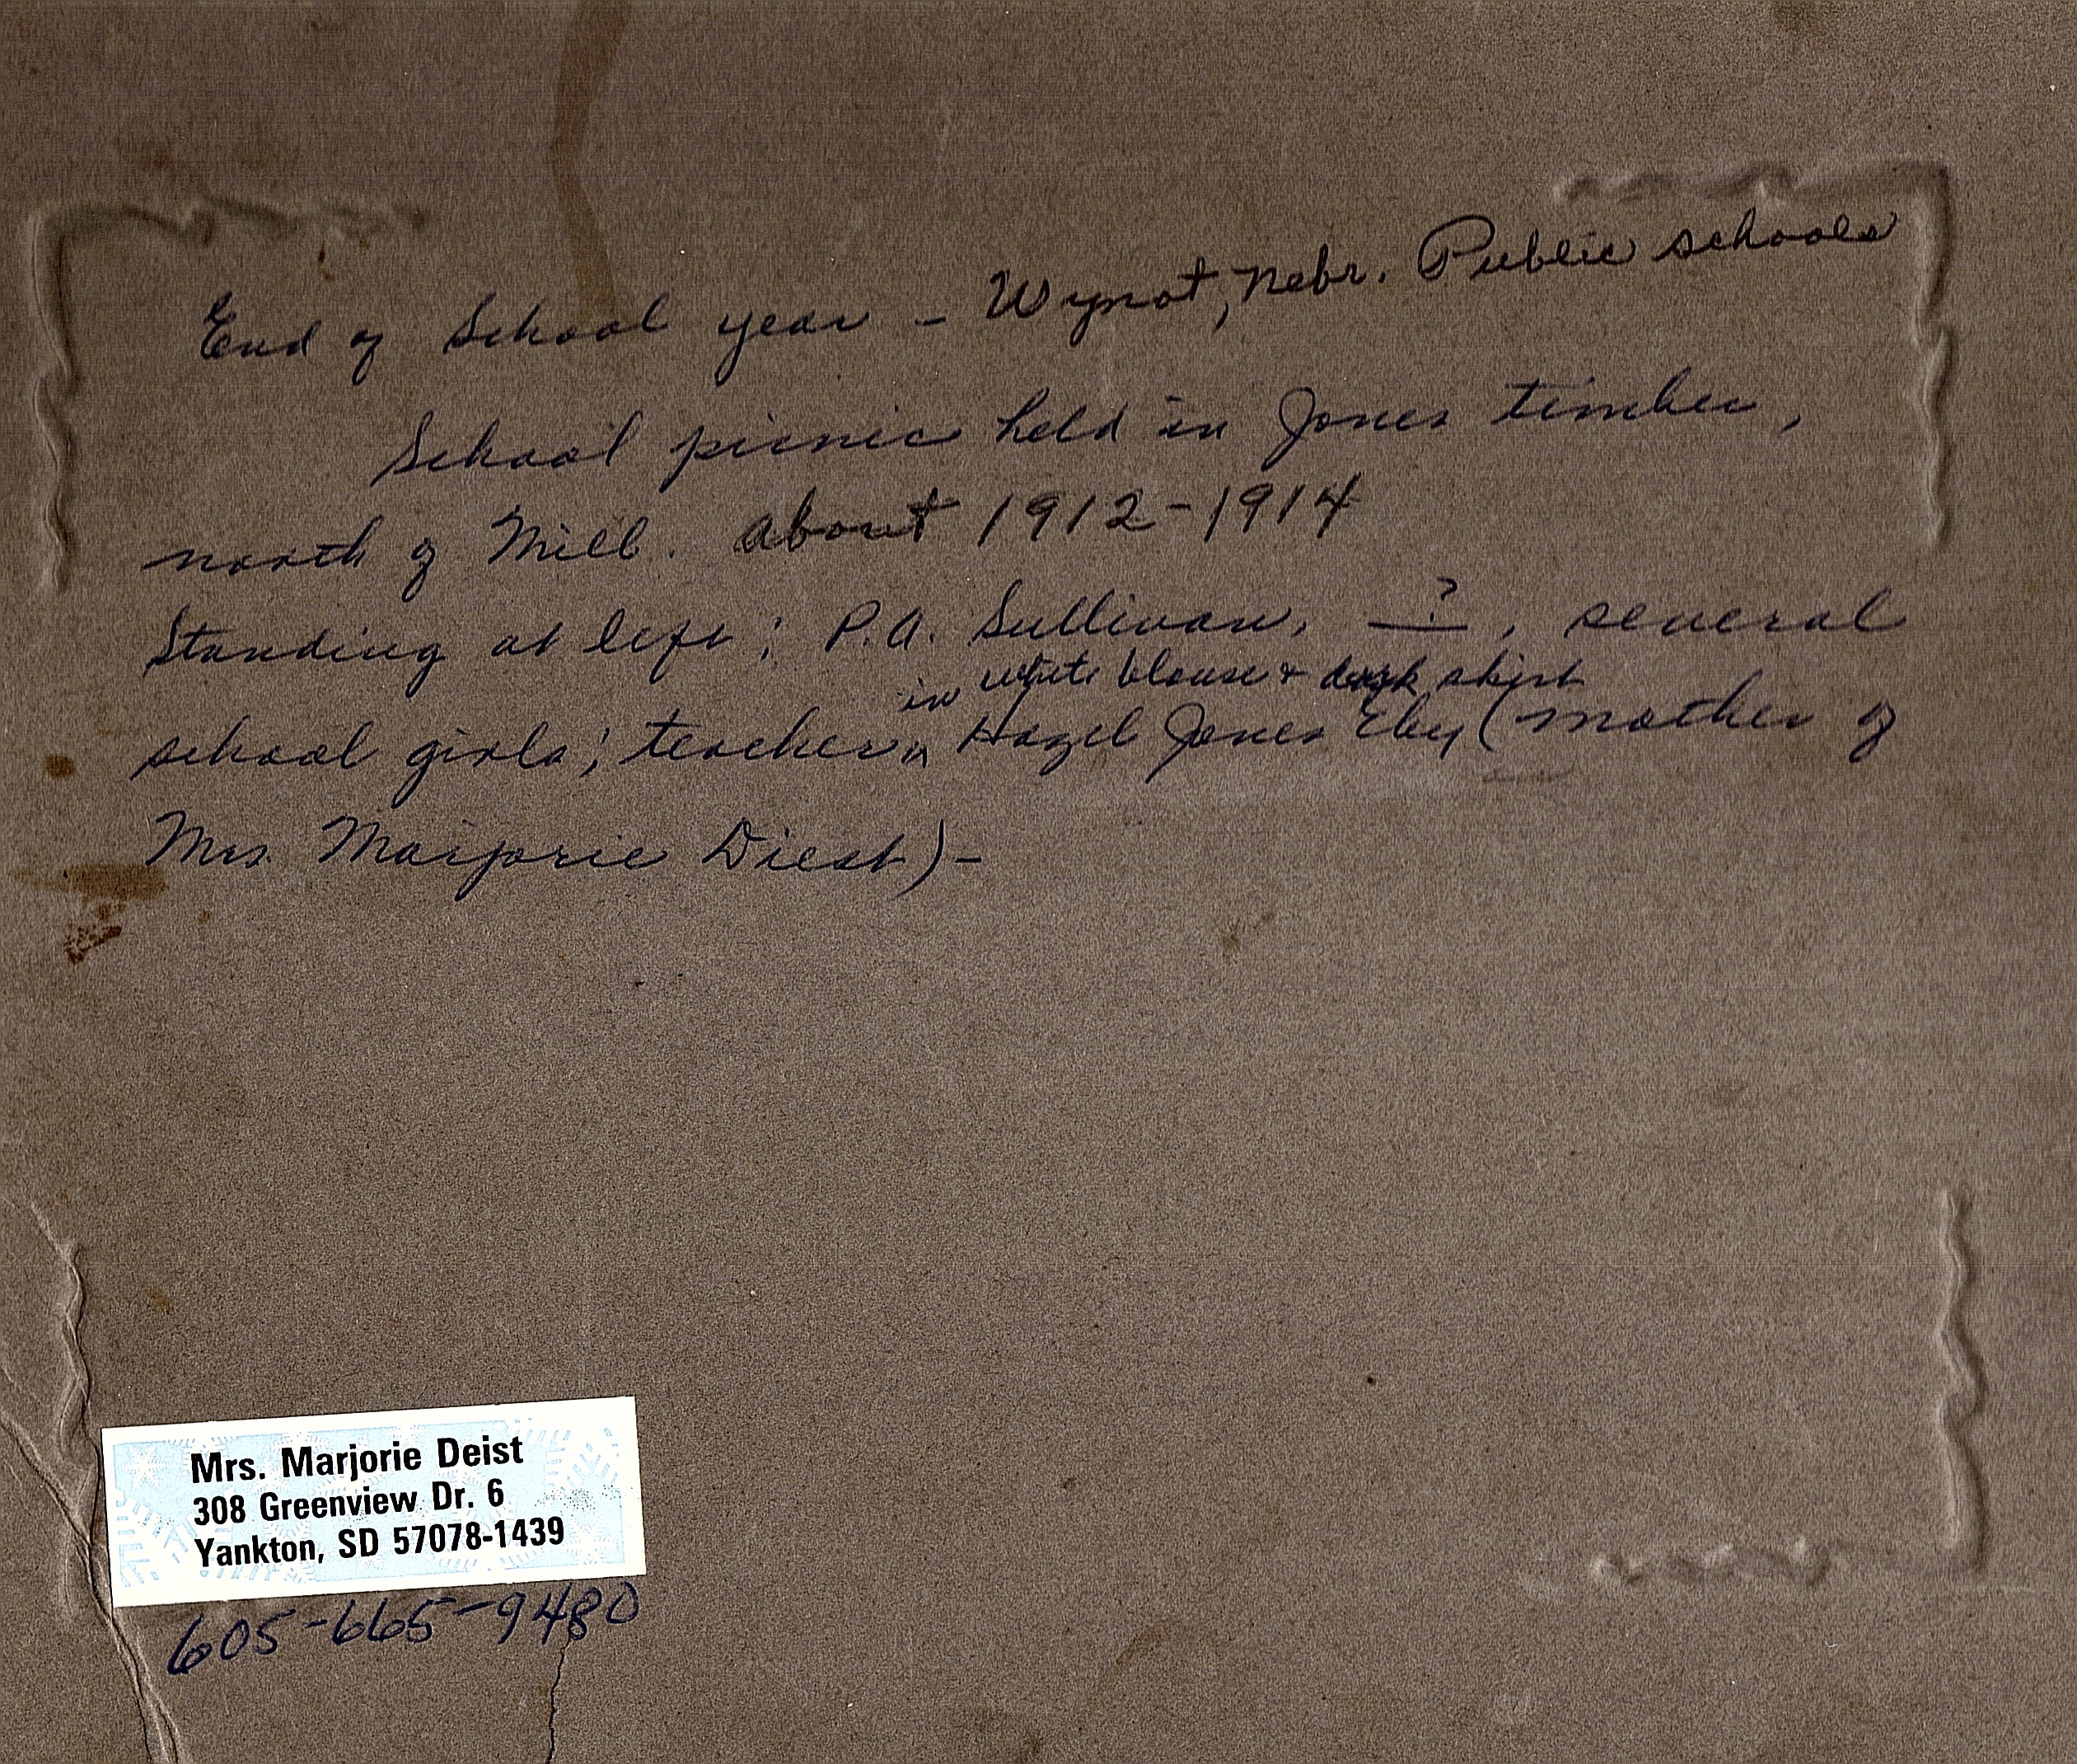 End of School year - Wynot, Nebr. Public schools
School picnic held in Jones timber,
north of Mill. About 1912-1914
Standing at left; P.A. Sullivan, ?, several
in white blouse & dark skirt
school girls; teacher ^ Hazel Jones Eby (mother of
Mrs. Marjorie Diest)-
Mrs. Marjorie Deist
308 Greenview Dr. 6
Yankton, SD 57078-1439
605-665-9480